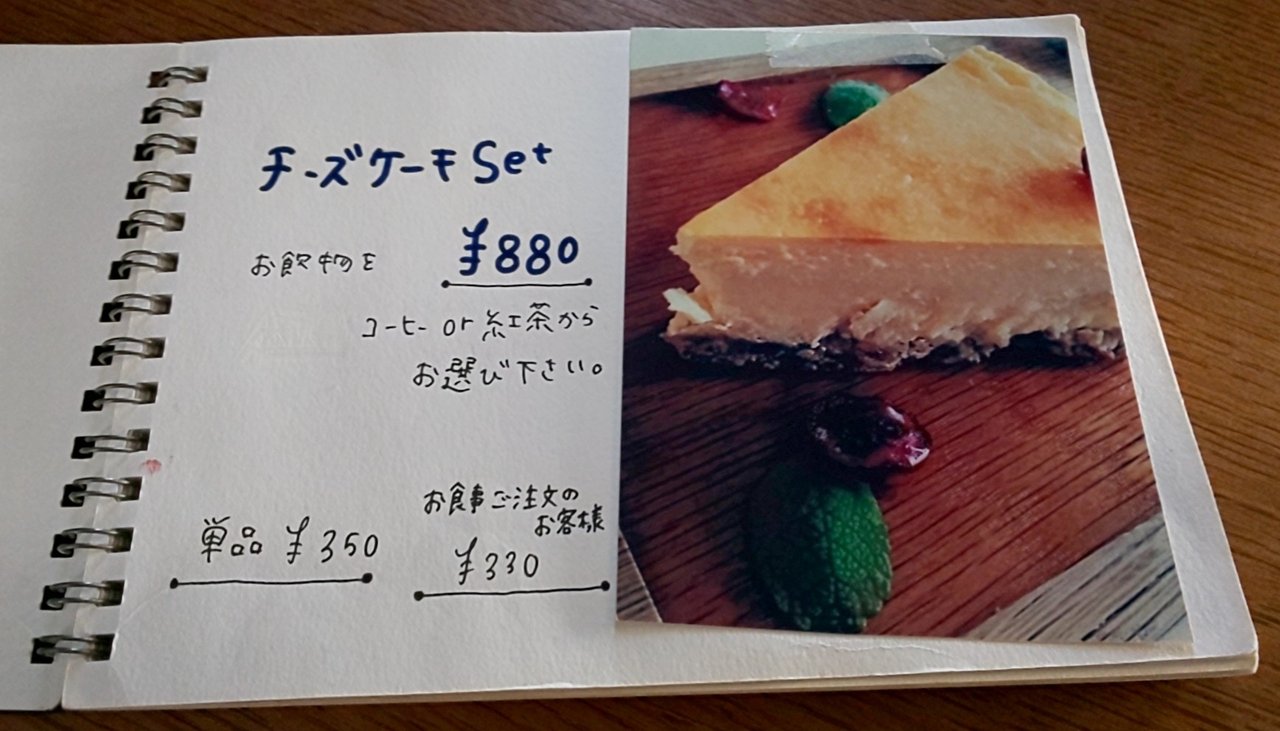 チーズケーキ Set
¥880
お飲物を
コーヒー or 紅茶から
お選び下さい。
単品 ¥350
お食事ご注文の
お客様
¥330